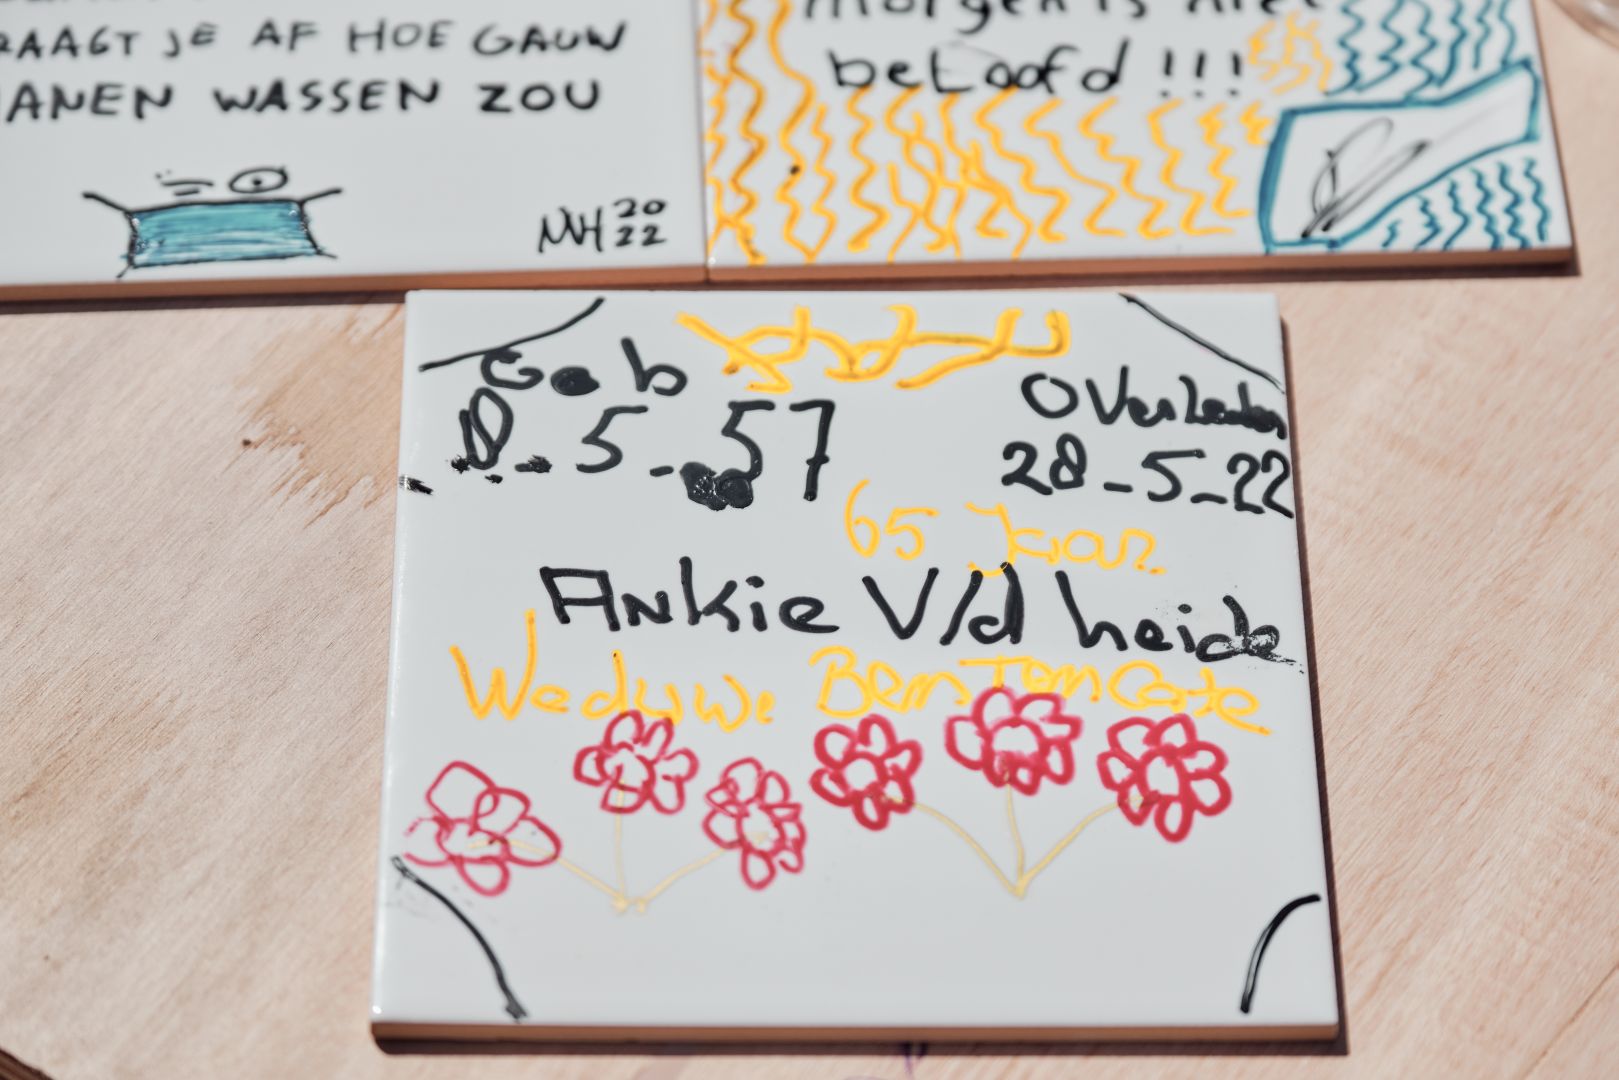 RAAGT JE AF HOE GAUW
ANEN WASSEN ZOU
MH 20
22
morgen is niet
beloofd !!!
Geb
8-5-57
Overleden
28-5-22
65 Jaar
Ankie V/d heide
Weduwe Ben Ten Cate